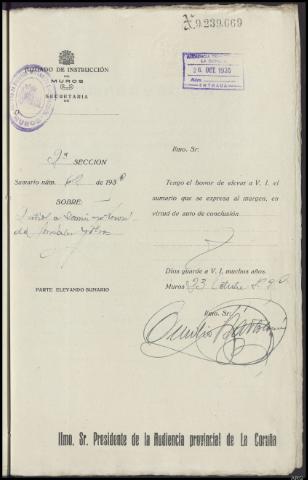 N.9.239.669
JUZGADO DE INSTRUCCIÓN
DE
MUROS
SECRETARIA
DE
AUDIENCIA
LA CORUÑA
26 OCT. 1936
Núm.
ENTRADA
2ª
SECCIÓN
Ilmo. Sr.
Sumario núm. 62 de 1936
Tengo el honor de elevar a V. I. el
SOBRE:
sumario que se expresa al margen, en
virtud de auto de conclusión.
Dios guarde a V. I. muchos años.
PARTE ELEVANDO SUMARIO
Muros 23 Octubre 1936
Ilmo. Sr.:
Ilmo. Sr. Presidente de la Audiencia provincial de La Coruña